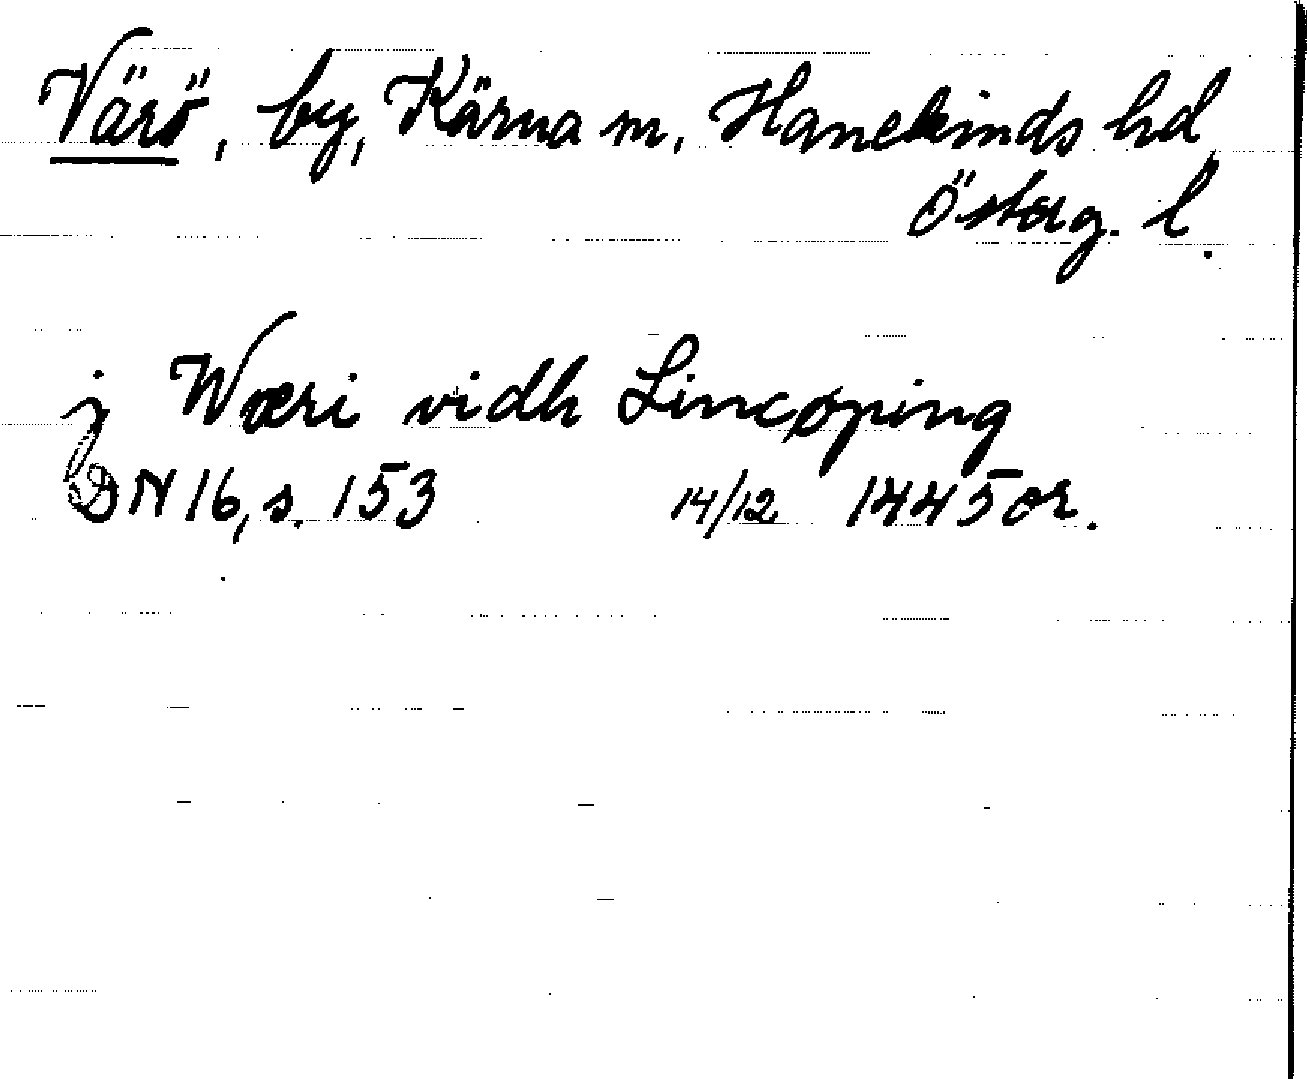 Värö, by, Kärna m, Hanekinds hd,
Österg. l.
j Wæri vidh Lincöping
DN 16, s. 153 14/12 1445 or.